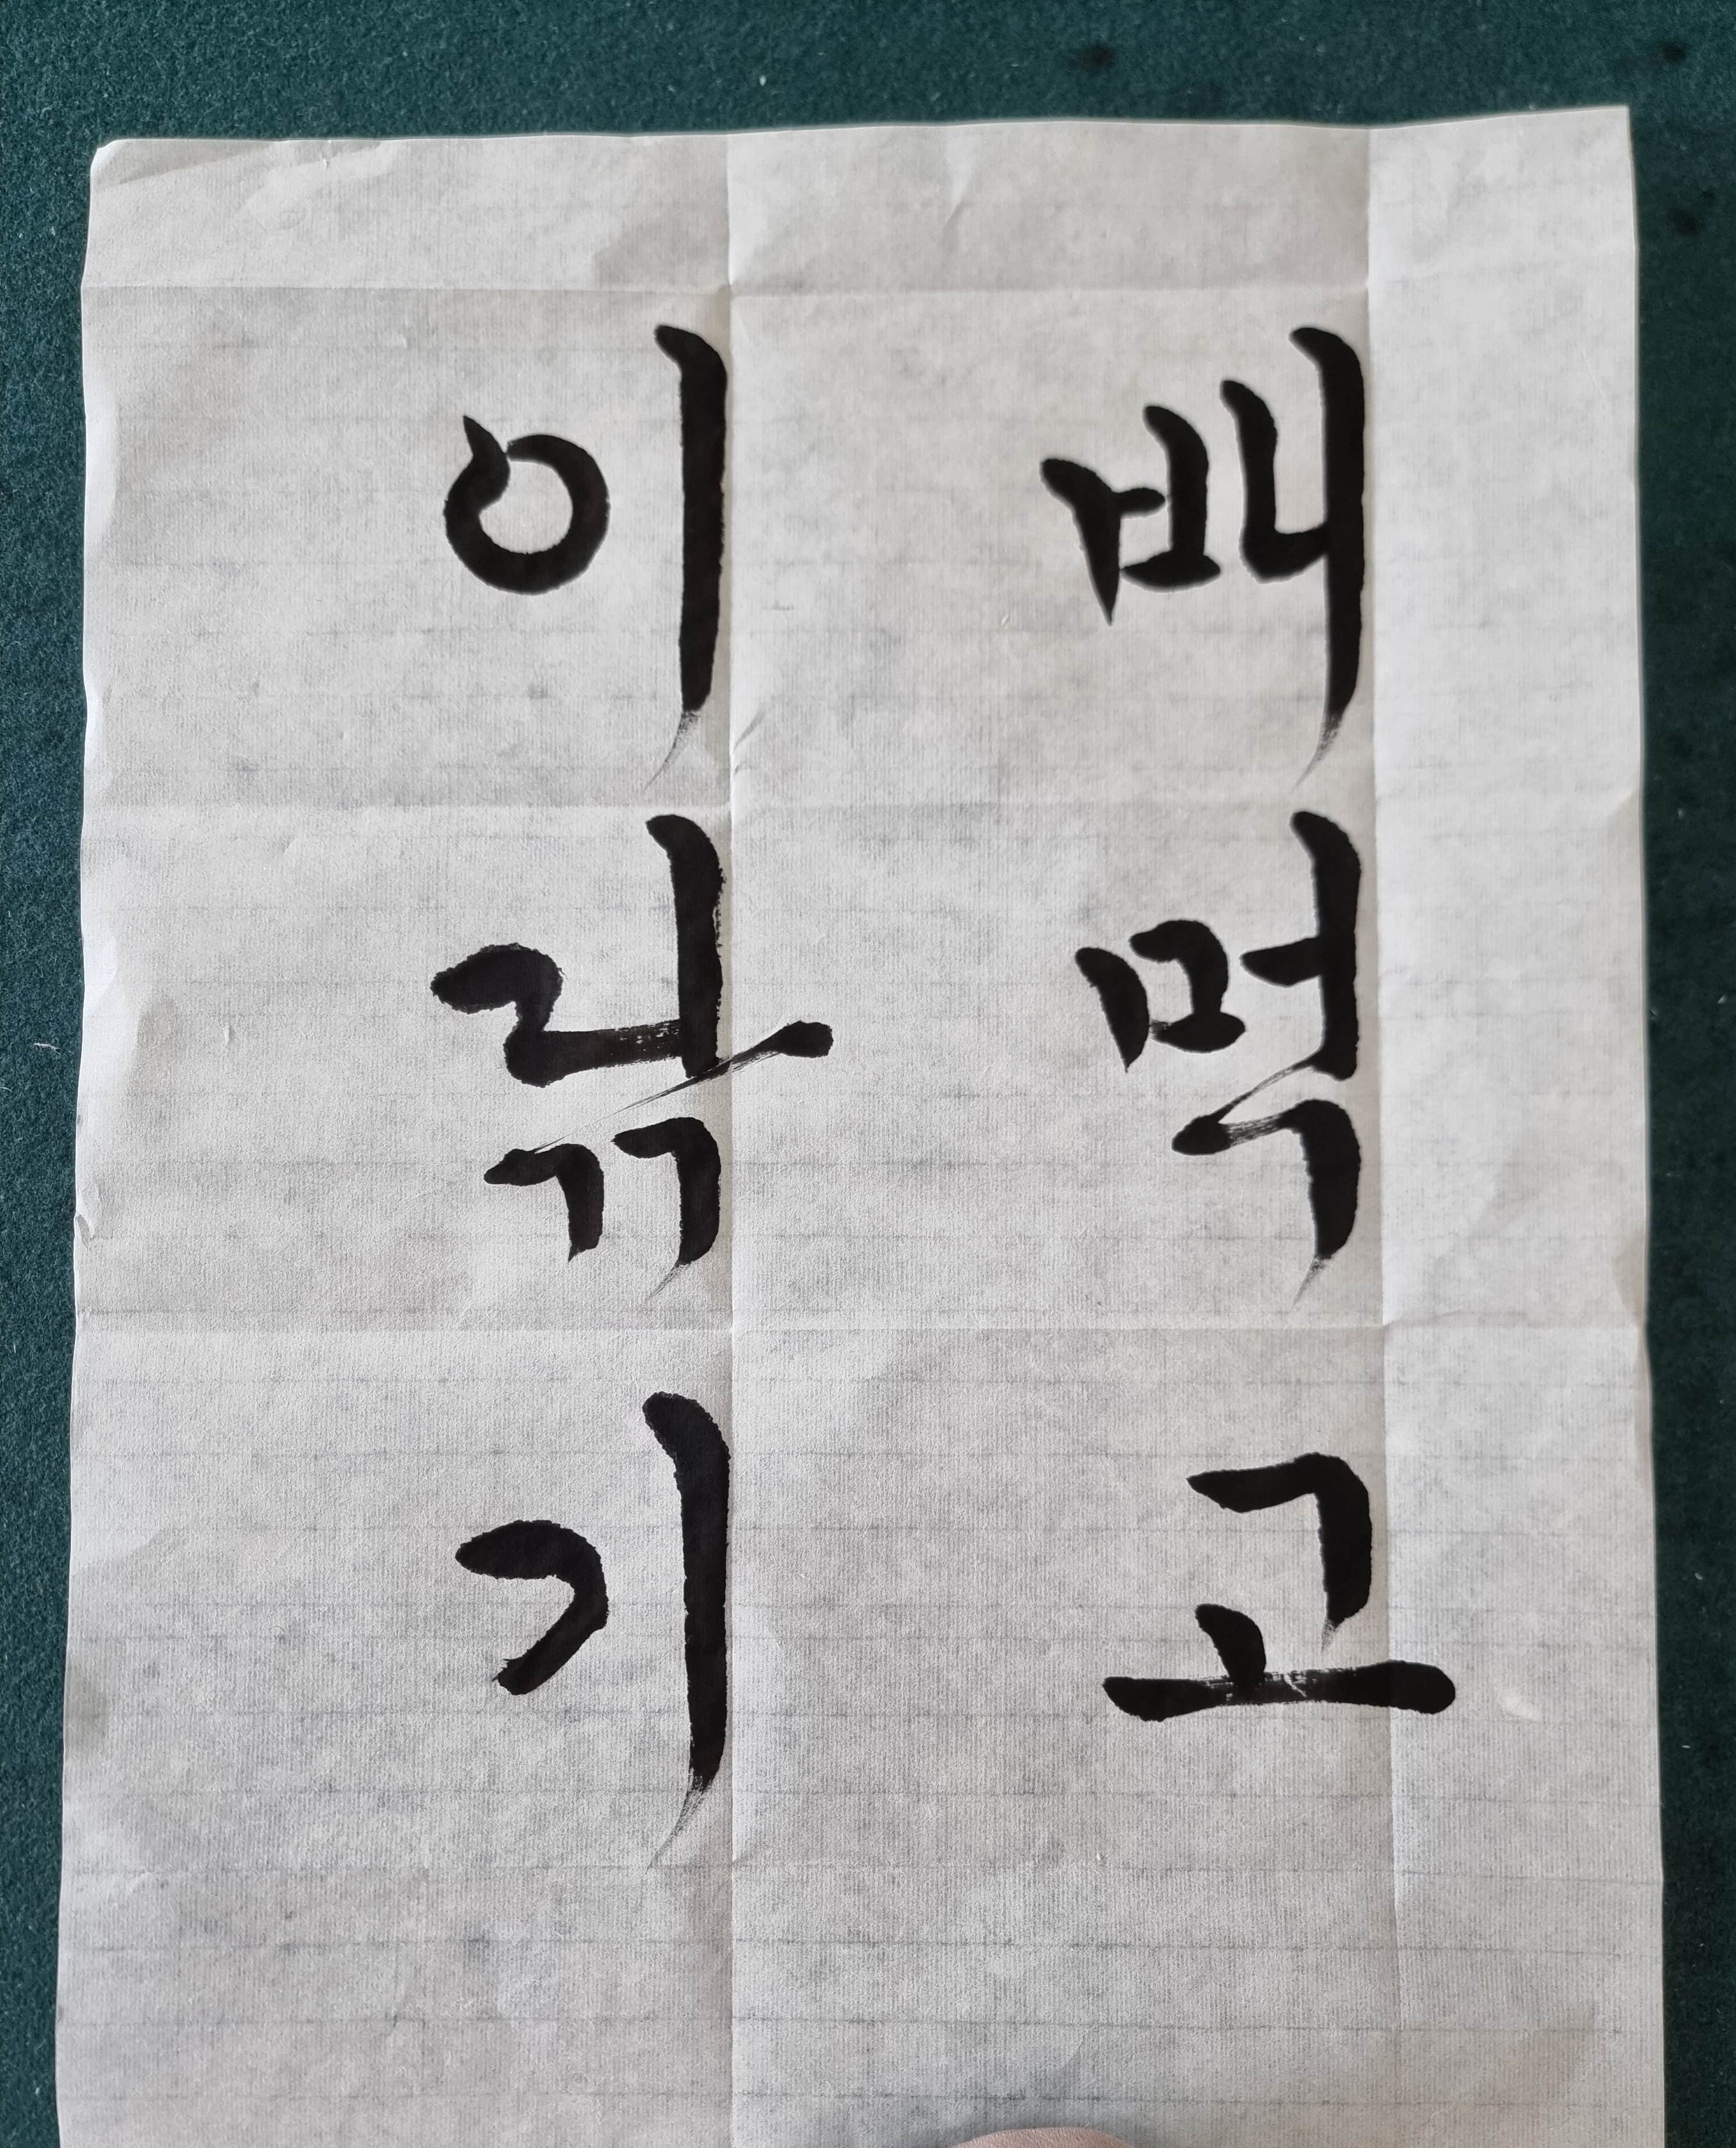 배먹고
이닦기